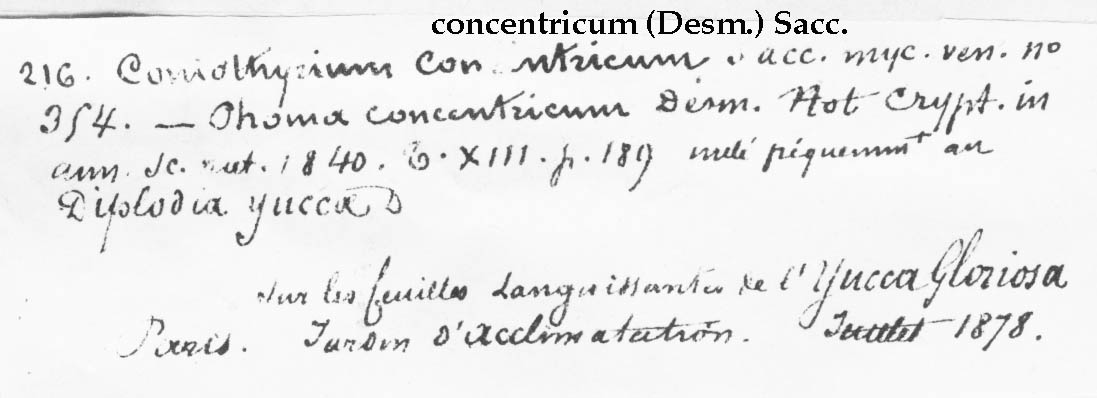 concentricum (Desm.) Sacc.
216. Coniothyrium concentricum Sacc. myc. ven. no
354. — Phoma concentricum Desm. Not Crypt. in
ann. Sc. nat. 1840. t. XIII. p. 189 mêlé au
Diplodia yucca D
sur les feuilles languissantes de l'Yucca Gloriosa
Paris. Jardin d'acclimatation. Juillet 1878.